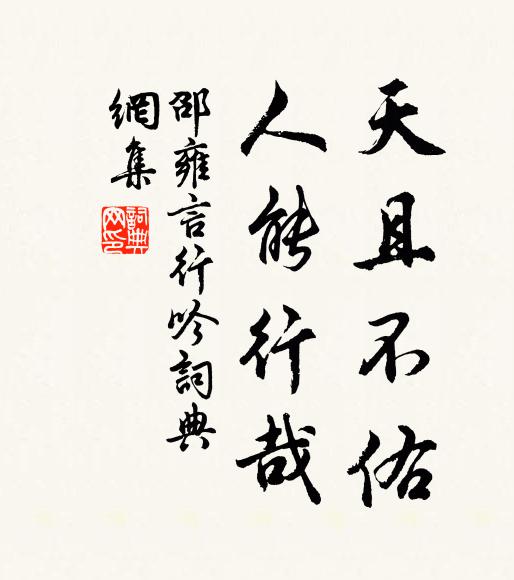 天且不佑
人能行哉
邵雍言行吟詞典
網集
詞典
網印